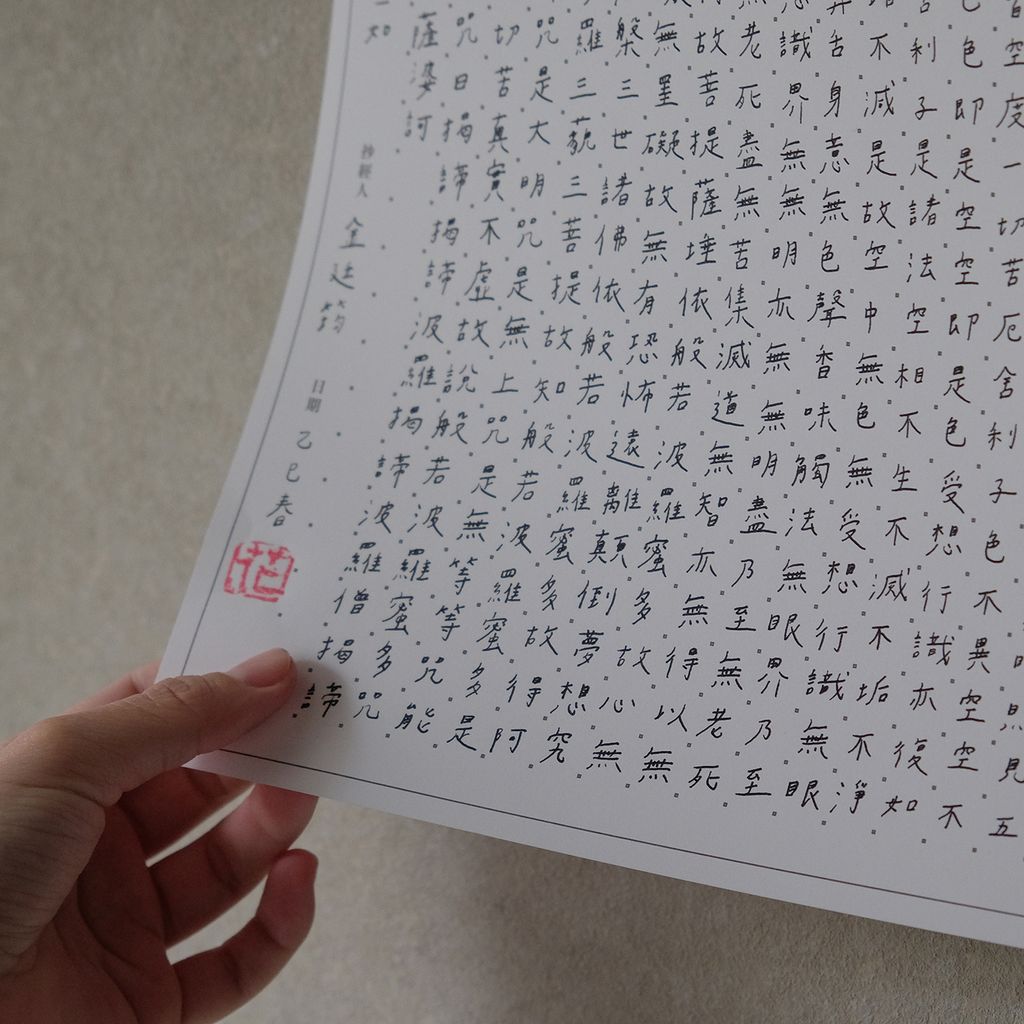 照見五
皆空度一切苦厄舍利子色不異空空不
色色即是空空即是色受想行識亦復如
舍利子是諸法空相不生不滅不垢不淨
增不減是故空中無色無受想行識無眼
鼻舌身意無色聲香味觸法無眼界乃至
意識界無無明亦無無明盡乃至無老死
無老死盡無苦集滅道無智亦無得以無
故菩提薩埵依般若波羅蜜多故心無
無罣礙故無有恐怖遠離顛倒夢想究
槃三世諸佛依般若波羅蜜多故得阿
羅三藐三菩提故知般若波羅蜜多是
咒是大明咒是無上咒是無等等咒能
切苦真實不虛故說般若波羅蜜多咒
咒曰揭諦揭諦波羅揭諦波羅僧揭諦
薩婆訶
抄經人 金廷筠
日期 乙巳春